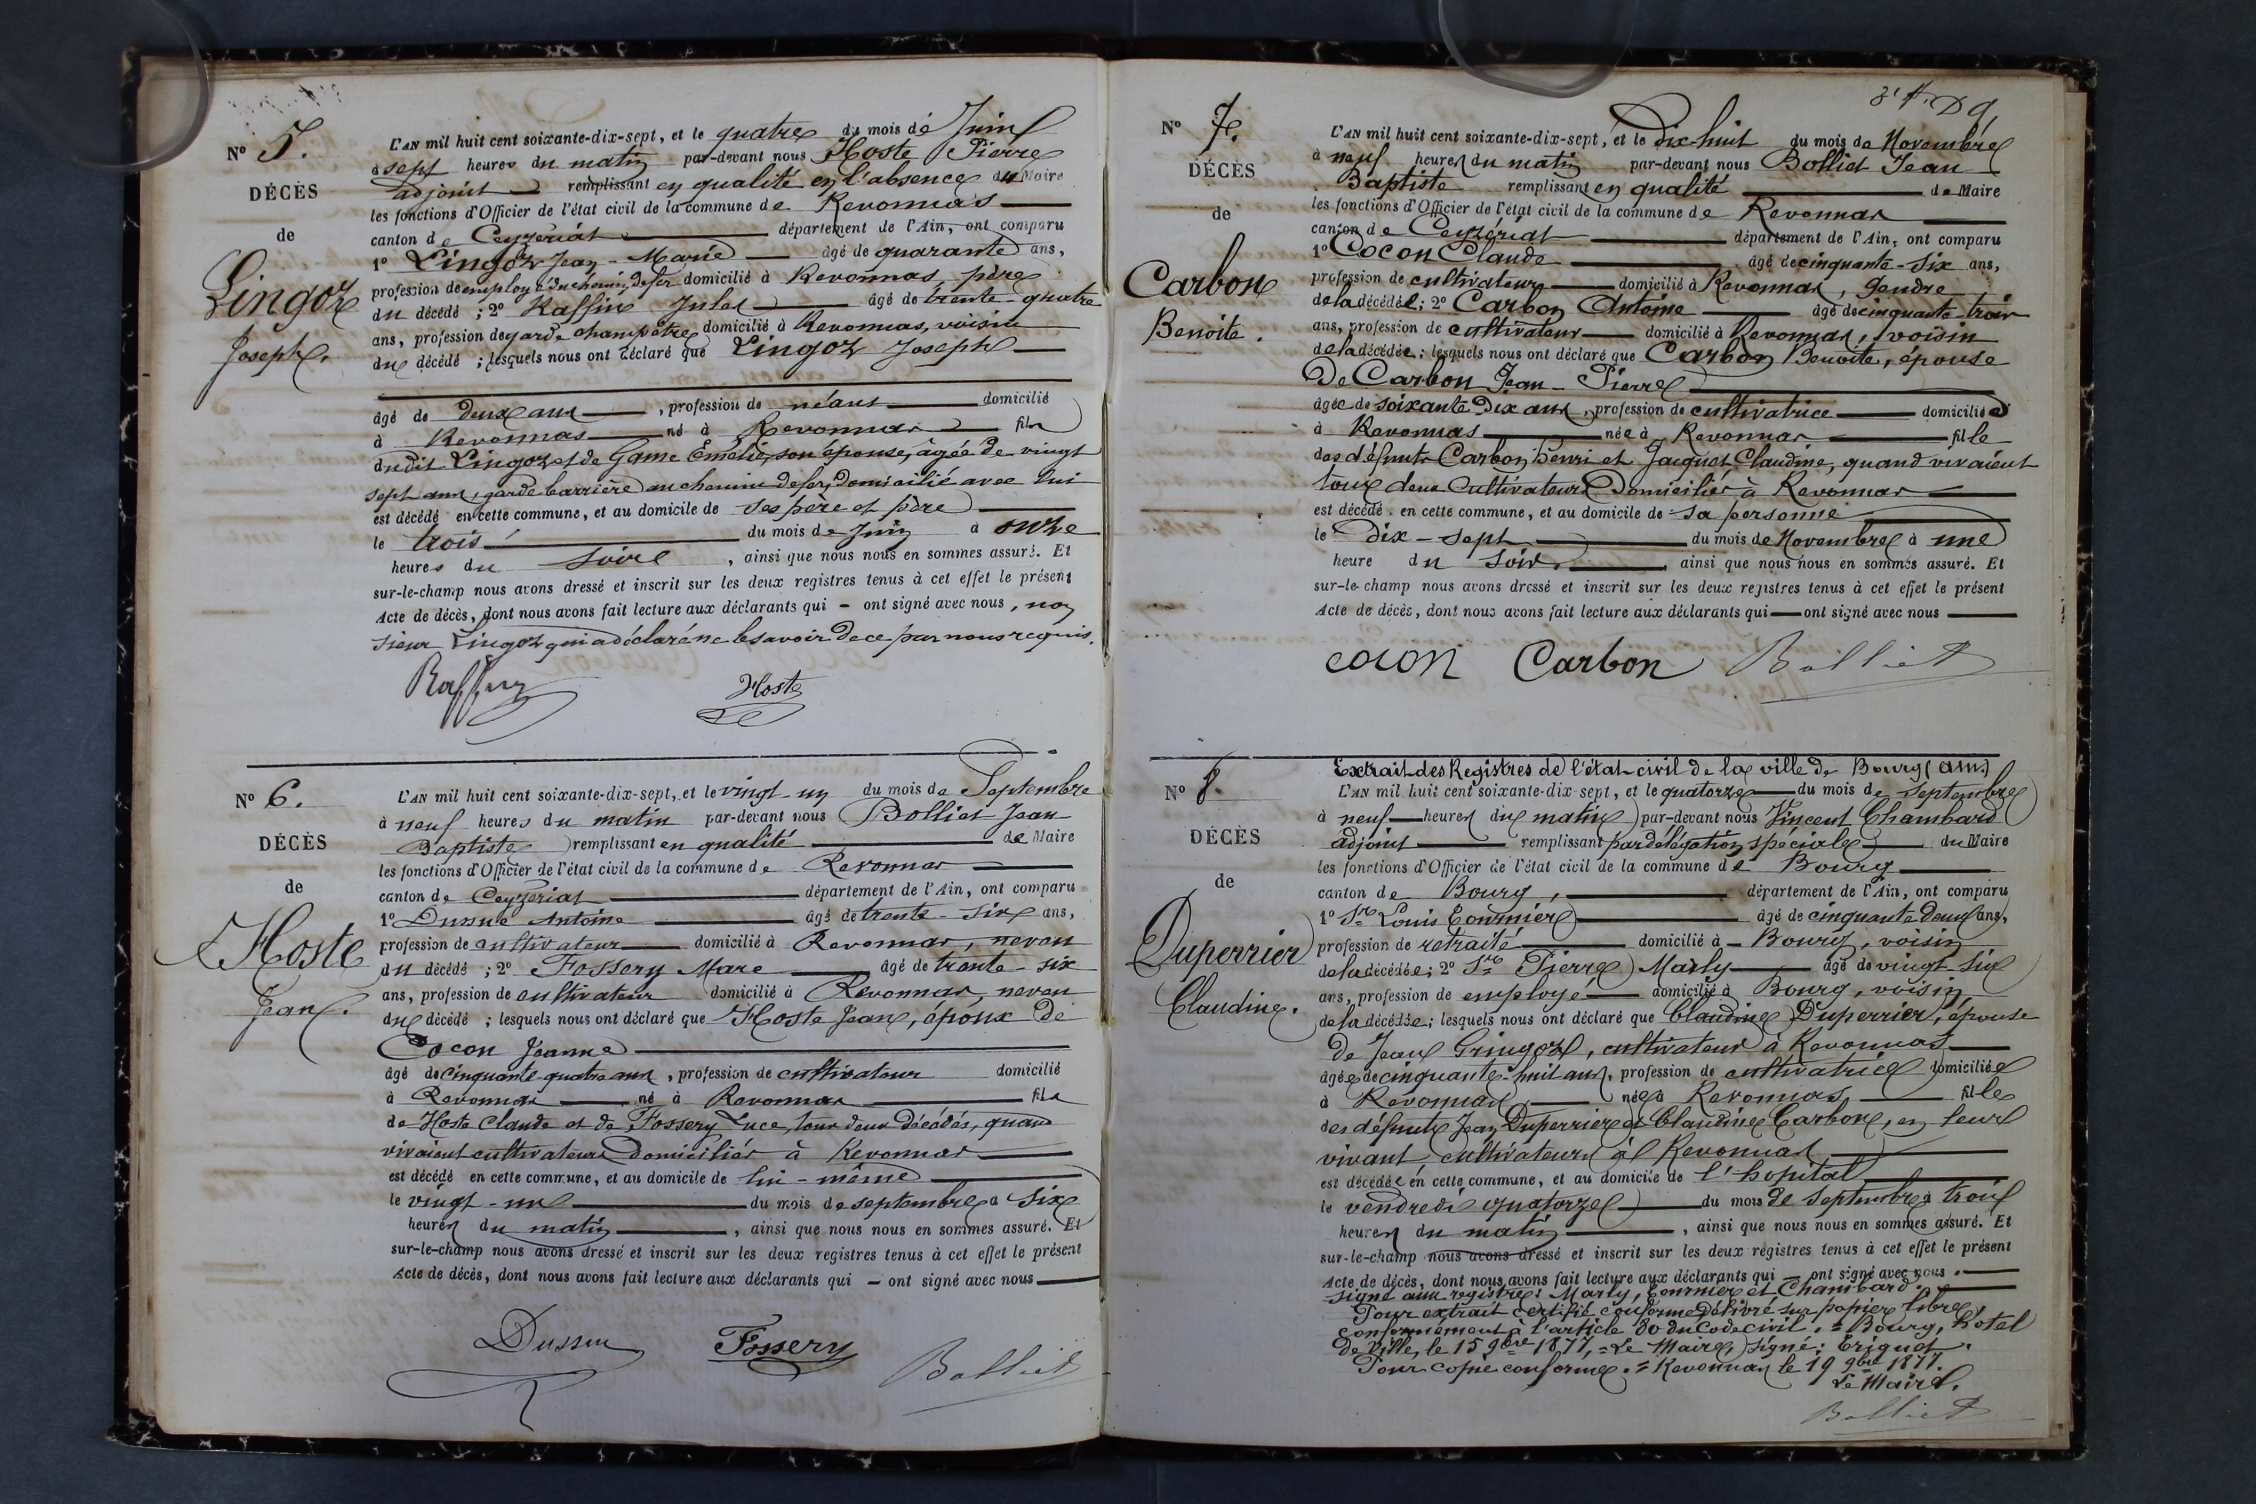 Nº 5.
DÉCÈS
de
Lingoz
Joseph.
L'AN mil huit cent soixante-dix-sept, et le quatre du mois de Juin
à sept heures du matin par-devant nous Hoste Pierre
adjoint remplissant en qualité en l'absence du Maire
les fonctions d'Officier de l'état civil de la commune de Revonnas
canton de Ceyzériat département de l'Ain, ont comparu
1º Lingoz Jean-Marie âgé de quarante ans,
profession de employé du chemin de fer domicilié à Revonnas, père
du décédé ; 2º Raffin Jules âgé de trente-quatre
ans, profession de garde champêtre domicilié à Revonnas, voisin
du décédé ; lesquels nous ont déclaré que Lingoz Joseph
âgé de deux ans, profession de néant domicilié
à Revonnas né à Revonnas fils
dudit Lingoz et de Game Emélie, son épouse, âgée de vingt
sept ans, garde barrière au chemin de fer, domicilié avec lui
est décédé en cette commune, et au domicile de ses père et père
le trois du mois de Juin à onze
heures du soire, ainsi que nous nous en sommes assuré. Et
sur-le-champ nous avons dressé et inscrit sur les deux registres tenus à cet effet le présent
Acte de décès, dont nous avons fait lecture aux déclarants qui - ont signé avec nous, non
sieur Lingoz qui a déclaré ne le savoir de ce par nous requis.
Raffin Hoste
Nº 6.
DÉCÈS
de
Hoste
Jean.
L'AN mil huit cent soixante-dix-sept, et le vingt-un du mois de Septembre
à neuf heures du matin par-devant nous Bolliet Jean
Baptiste remplissant en qualité de Maire
les fonctions d'Officier de l'état civil de la commune de Revonnas
canton de Ceyzériat département de l'Ain, ont comparu
1º Dussue Antoine âgé de trente-six ans,
profession de cultivateur domicilié à Revonnas, neveu
du décédé ; 2º Fossery Marc âgé de trente-six
ans, profession de cultivateur domicilié à Revonnas, neveu
du décédé ; lesquels nous ont déclaré que Hoste Jean, époux de
Cocon Jeanne
âgé de cinquante quatre ans, profession de cultivateur domicilié
à Revonnas né à Revonnas fils
de Hoste Claude et de Fossery Luce, tous deux décédés, quand
vivaient cultivateurs domiciliés à Revonnas
est décédé en cette commune, et au domicile de lui-même
le vingt-un du mois de septembre à six
heures du matin, ainsi que nous nous en sommes assuré. Et
sur-le-champ nous avons dressé et inscrit sur les deux registres tenus à cet effet le présent
Acte de décès, dont nous avons fait lecture aux déclarants qui - ont signé avec nous
Dussue Fossery Bolliet
Nº 7.
DÉCÈS
de
Carbon
Benoite.
L'AN mil huit cent soixante-dix-sept, et le dix huit du mois de Novembre
à neuf heures du matin par-devant nous Bolliet Jean
Baptiste remplissant en qualité de Maire
les fonctions d'Officier de l'état civil de la commune de Revonnas
canton de Ceyzériat département de l'Ain, ont comparu
1º Cocon Claude âgé de cinquante-six ans,
profession de cultivateur domicilié à Revonnas, gendre
de la décédée ; 2º Carbon Antoine âgé de cinquante trois
ans, profession de cultivateur domicilié à Revonnas, voisin
de la décédée ; lesquels nous ont déclaré que Carbon Benoite, épouse
De Carbon Jean-Pierre
âgée de soixante dix ans, profession de cultivatrice domiciliée
à Revonnas née à Revonnas fille
des défunts Carbon Henri et Jacquet Claudine, quand vivaient
tous deux cultivateurs domiciliés à Revonnas
est décédé en cette commune, et au domicile de sa personne
le Dix-sept du mois de Novembre à une
heure du soir, ainsi que nous nous en sommes assuré. Et
sur-le-champ nous avons dressé et inscrit sur les deux registres tenus à cet effet le présent
Acte de décès, dont nous avons fait lecture aux déclarants qui ont signé avec nous
cocon Carbon Bolliet
Extrait des Registres de l'état-civil de la ville de Bourg (ain.)
Nº 8.
DÉCÈS
de
Duperrier
Claudine.
L'AN mil huit cent soixante-dix sept, et le quatorze du mois de septembre
à neuf heures du matin par-devant nous Vincent Chambard
adjoint remplissant par délégation spéciale du Maire
les fonctions d'Officier de l'état civil de la commune de Bourg
canton de Bourg, département de l'Ain, ont comparu
1º Sr Louis Tournier âgé de cinquante deux ans,
profession de retraité domicilié à Bourg, voisin
de la décédée ; 2º Sr Pierre Marly âgé de vingt-six
ans, profession de employé domicilié à Bourg, voisin
de la décédée ; lesquels nous ont déclaré que Claudine Duperrier, épouse
de Jean Gringoz, cultivateur à Revonnas
âgée de cinquante-huit ans, profession de cultivatrice domiciliée
à Revonnas, née à Revonnas fille
des défunts Jean Duperrier et Claudine Carbon, en leur
vivant cultivateurs à Revonnas
est décédée en cette commune, et au domicile de l'hopital
le vendredi quatorze du mois de Septembre à trois
heures du matin, ainsi que nous nous en sommes assuré. Et
sur-le-champ nous avons dressé et inscrit sur les deux registres tenus à cet effet le présent
Acte de décès, dont nous avons fait lecture aux déclarants qui - ont signé avec nous.
Signé aux registres: Marly, Tournier et Chambard.
Pour extrait certifié conforme délivré sur papier libre
conformément à l'article 80 du Code civil. = Bourg, hôtel
de Ville, le 15 9bre 1877, = Le Maire, signé:
Pour copie conforme. = Revonnas le 19 9bre 1877.
Le Maire.
Bolliet